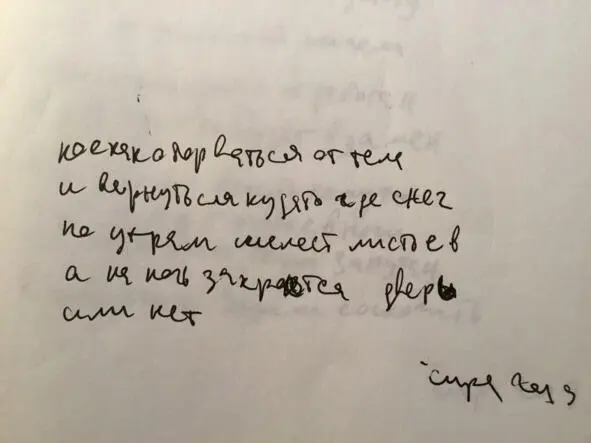 коекак оторваться от тела
и вернуться кудято где снег
по утрям шелест листьев
а на ночь закрается дверь
или нет